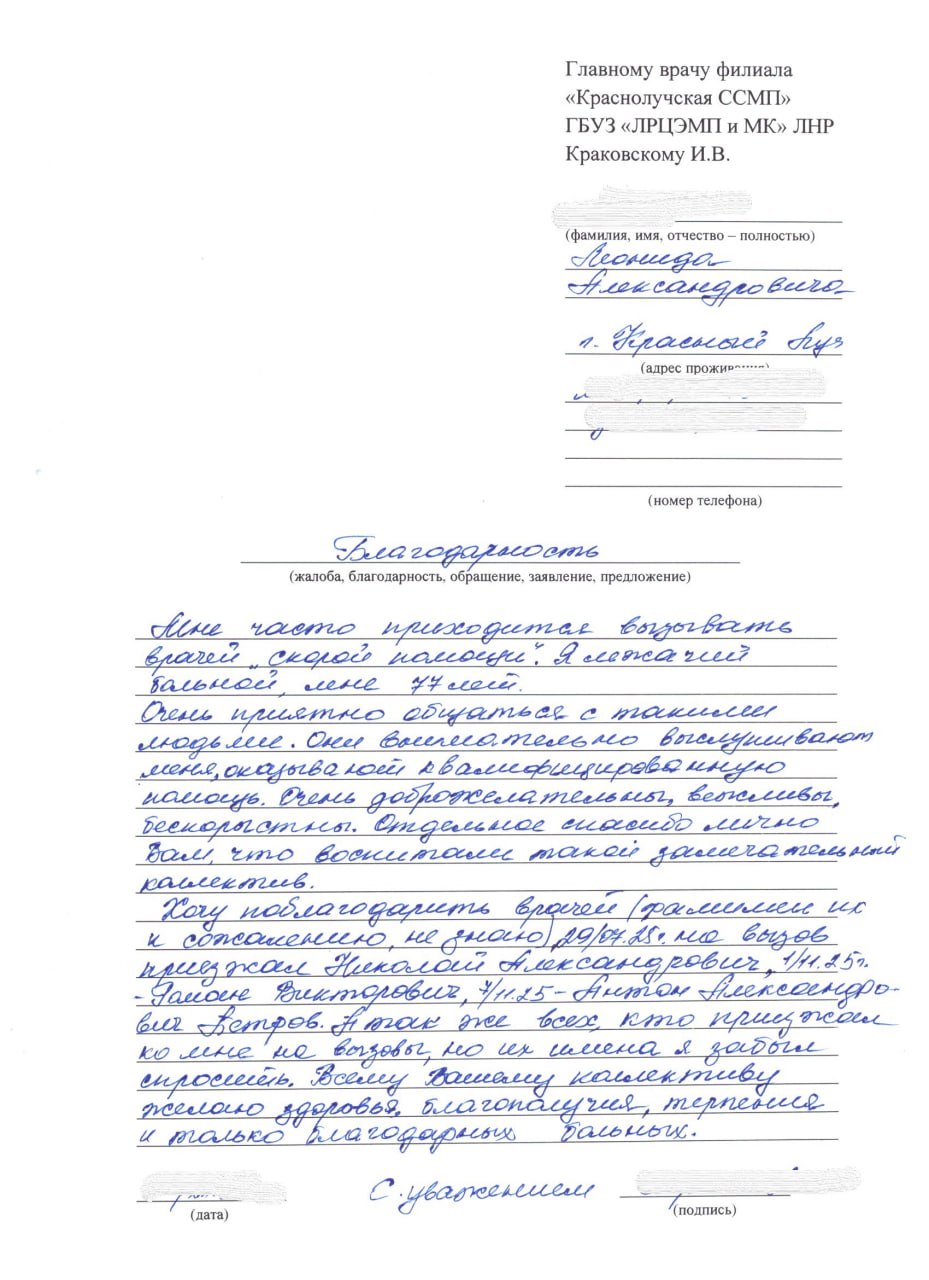 Главному врачу филиала
«Краснолучская ССМП»
ГБУЗ «ЛРЦЭМП и МК» ЛНР
Краковскому И.В.
(фамилия, имя, отчество – полностью)
Леонида
Александровича
г. Красный Луч
(адрес проживания)
(номер телефона)
Благодарность
(жалоба, благодарность, обращение, заявление, предложение)
Мне часто приходится вызывать
врачей „скорой помощи". Я лежачий
больной, мне 77 лет.
Очень приятно общаться с такими
людьми. Они внимательно выслушивают
меня, оказывают квалифицированную
помощь. Очень доброжелательны, вежливы,
бескорыстны. Отдельное спасибо лично
Вам, что воспитали такой замечательный
коллектив.
Хочу поблагодарить врачей (фамилии их
к сожалению, не знаю) 29/07.25г. на вызов
приезжал Николай Александрович, 1/11.25г.
- Роман Викторович, 7/11.25 – Антон Александро-
вич Ветров. А так же всех, кто приезжал
ко мне на вызовы, но их имена я забыл
спросить. Всему Вашему коллективу
желаю здоровья, благополучия, терпения
и только благодарных больных.
С уважением
(дата)
(подпись)